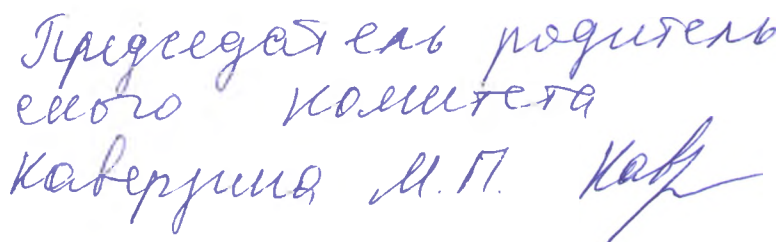 Председатель родитель
ского комитета
Каверзина М.П. Кав